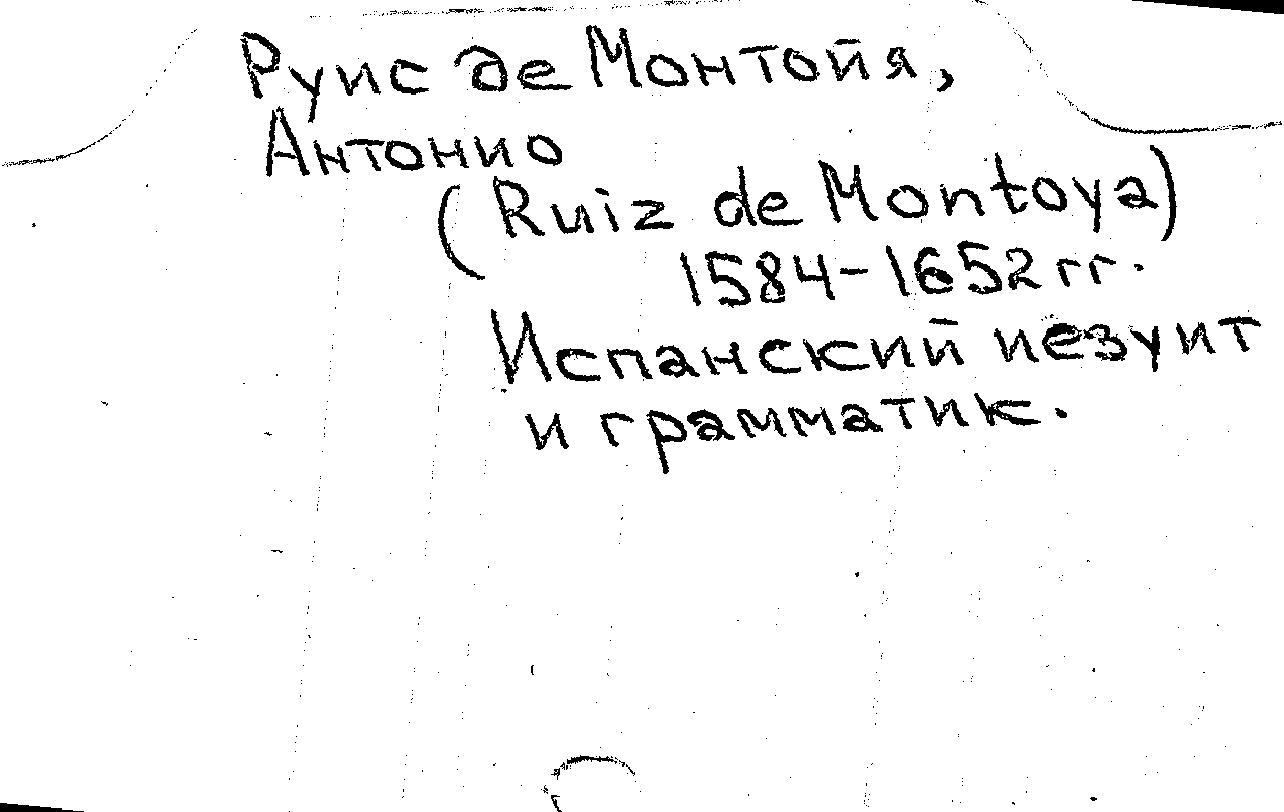 Руис де Монтойя,
Антонио
(Ruiz de Montoya)
1584-1652 гг.
Испанский иезуит
и грамматик.